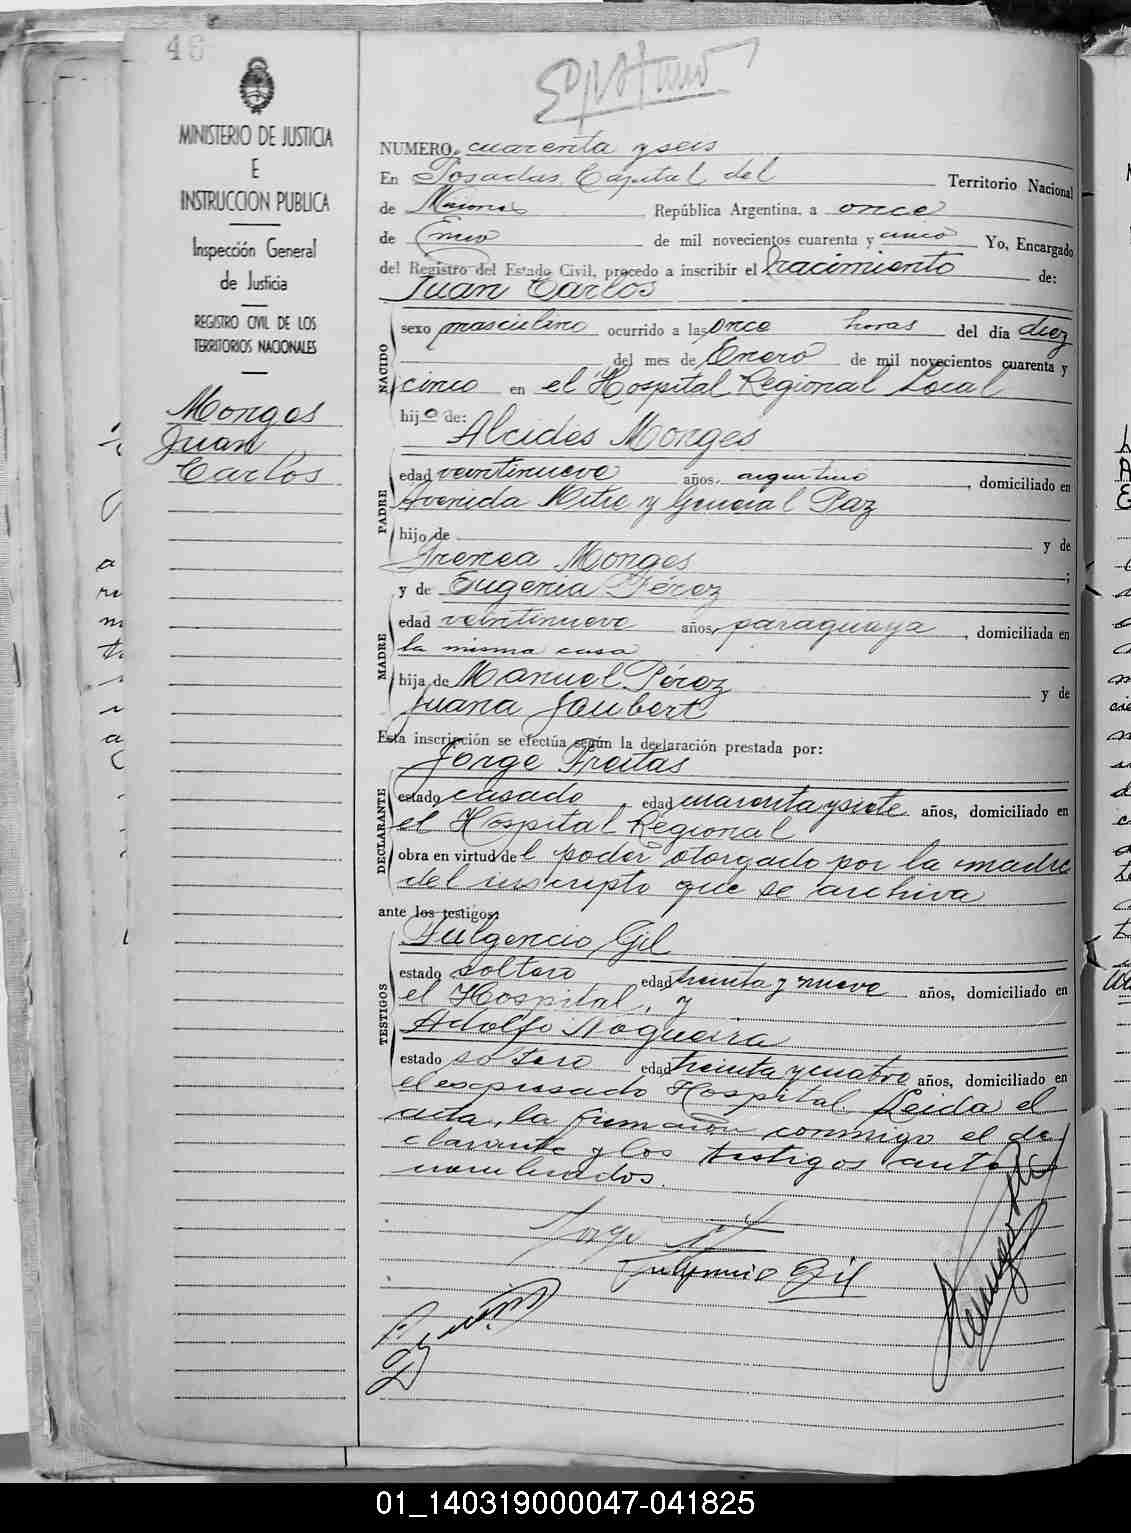 46
MINISTERIO DE JUSTICIA
E
INSTRUCCION PUBLICA
Inspección General
de Justicia
REGISTRO CIVIL DE LOS
TERRITORIOS NACIONALES
Monges
Juan
Carlos
NUMERO cuarenta y seis
En Posadas, Capital del Territorio Nacional
de Misiones República Argentina, a once
de Enero de mil novecientos cuarenta y cinco Yo, Encargado
del Registro del Estado Civil, procedo a inscribir el nacimiento de:
Juan Carlos
NACIDO
sexo masculino ocurrido a las once horas del día diez
del mes de Enero de mil novecientos cuarenta y
cinco en el Hospital Regional Local
hijo de:
Alcides Monges
PADRE
edad veintinueve años, argentino, domiciliado en
Avenida Mitre y General Paz
hijo de y de
Irenea Monges;
y de Eugenia Pérez
MADRE
edad veintinueve años, paraguaya, domiciliada en
la misma casa
hija de Manuel Pérez y de
Juana Joubert
Esta inscripción se efectúa según la declaración prestada por:
Jorge Freitas
DECLARANTE
estado casado, edad cuarenta y siete años, domiciliado en
el Hospital Regional
obra en virtud del poder otorgado por la madre
del inscripto que se archiva
ante los testigos:
Fulgencio Gil
TESTIGOS
estado soltero edad treinta y nueve años, domiciliado en
el Hospital, y
Adolfo Nogueira
estado soltero edad treinta y cuatro años, domiciliado en
el expresado Hospital. Leida el
acta, la firmaron conmigo el de
clarante y los testigos ante
nombrados.
Jorge
Fulgencio Gil
01_140319000047-041825